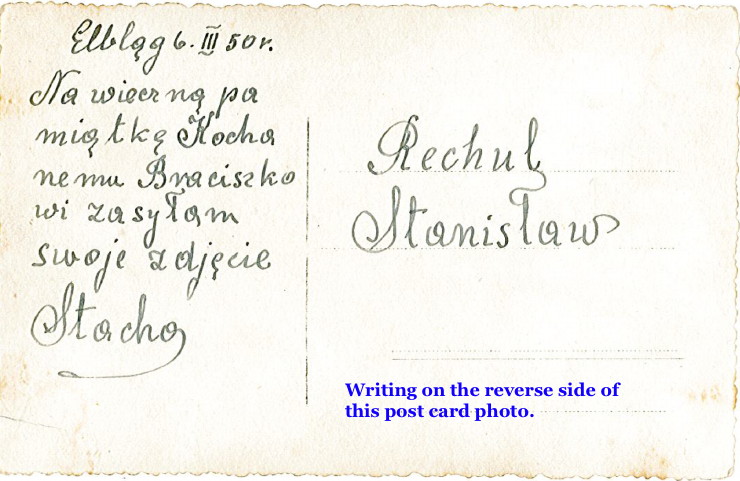 Elbląg 6. III 50r.
Na wieczną pa
miątkę Kocha
nemu Braciszko
wi zasyłam
swoje zdjęcie
Stacha
Rechul
Stanisław
Writing on the reverse side of
this post card photo.